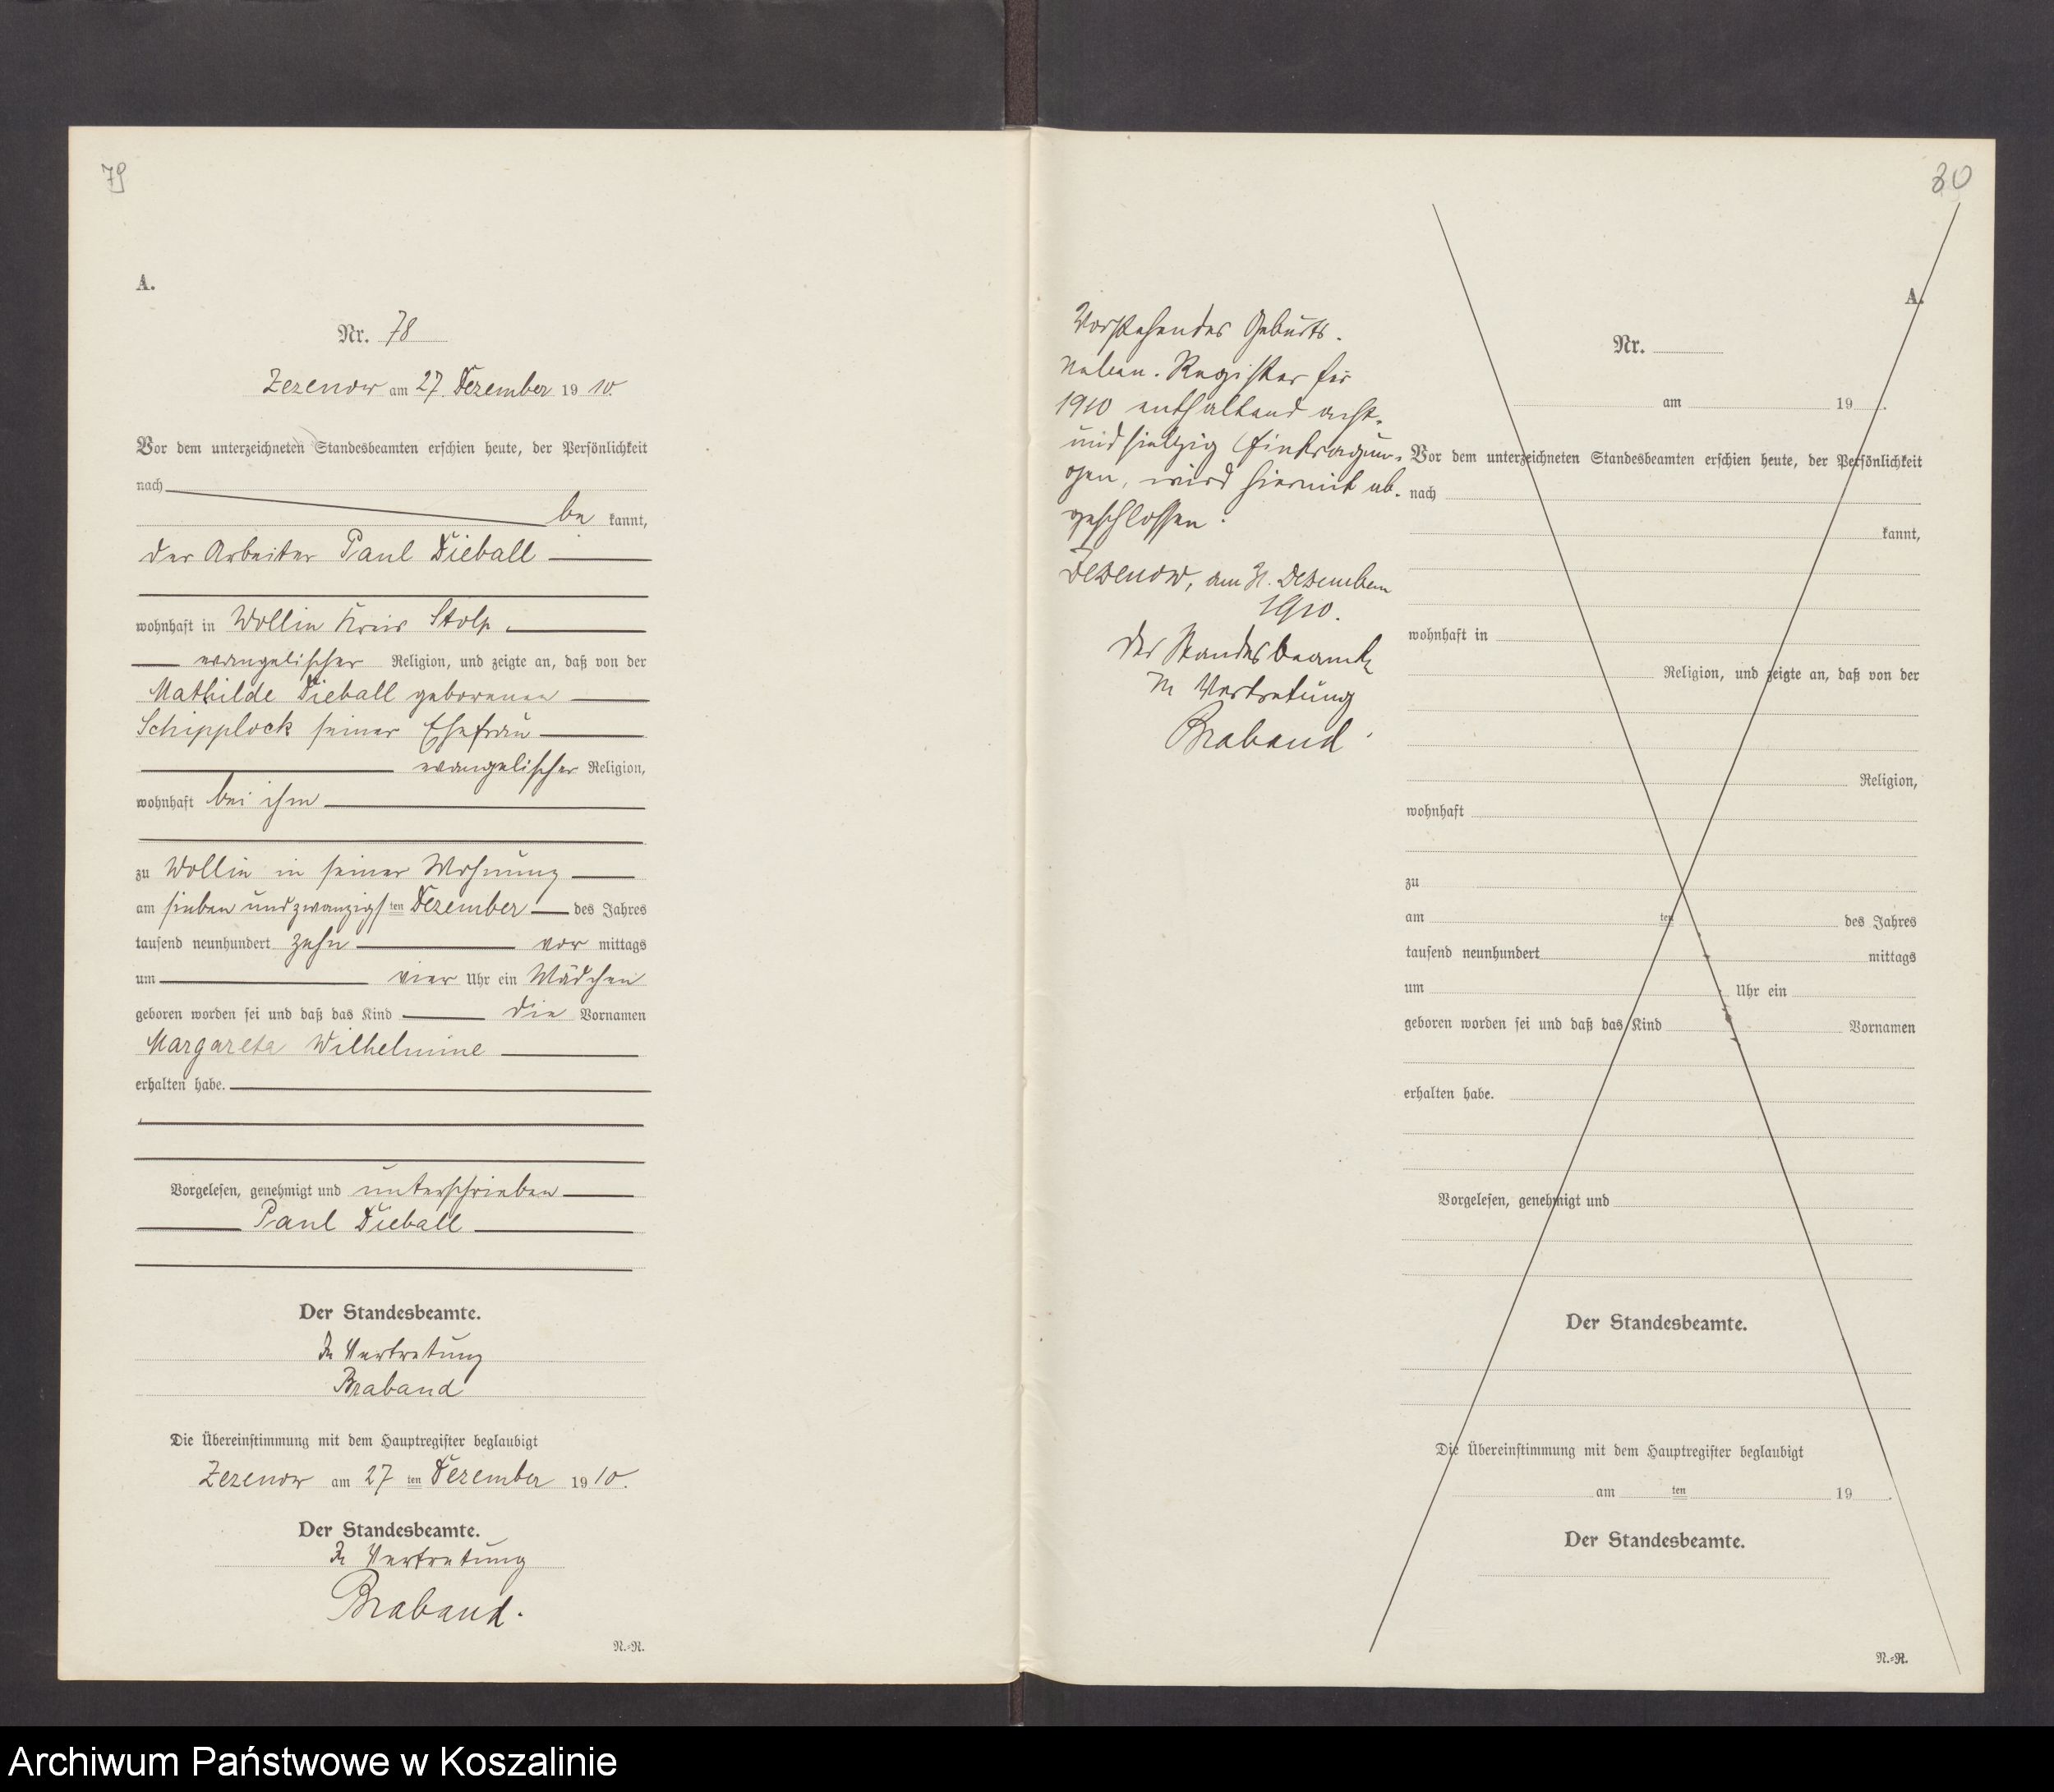 79
A.
Nr. 78
Zezenow am 27. Dezember 1910.
Vor dem unterzeichneten Standesbeamten erschien heute, der Persönlichkeit
nach
be kannt,
der Arbeiter Paul Dieball
wohnhaft in Wollin Kreis Stolp.
evangelischer Religion, und zeigte an, daß von der
Mathilde Dieball geborenen
Schipplock seiner Ehefrau
evangelischer Religion,
wohnhaft bei ihm
zu Wollin in seiner Wohnung
am sieben und zwanzigsten Dezember des Jahres
tausend neunhundert zehn vor mittags
um vier Uhr ein Mädchen
geboren worden sei und daß das Kind die Vornamen
Margareta Wilhelmine
erhalten habe.
Vorgelesen, genehmigt und unterschrieben
Paul Dieball
Der Standesbeamte.
In Vertretung
Braband
Die Übereinstimmung mit dem Hauptregister beglaubigt
Zezenow am 27 ten Dezember 1910.
Der Standesbeamte.
In Vertretung
Braband.
N.-R.
80
Vorstehendes Geburts-
Neben-Register für
1910 enthaltend acht-
undsiebzig Eintragun-
gen, wird hiermit ab-
geschlossen.
Zezenow, am 31. Dezember
1910.
Der Standesbeamte
In Vertretung
Braband
A.
Nr.
am 19 .
Vor dem unterzeichneten Standesbeamten erschien heute, der Persönlichkeit
nach
kannt,
wohnhaft in
Religion, und zeigte an, daß von der
Religion,
wohnhaft
zu
am ten des Jahres
tausend neunhundert mittags
um Uhr ein
geboren worden sei und daß das Kind Vornamen
erhalten habe.
Vorgelesen, genehmigt und
Der Standesbeamte.
Die Übereinstimmung mit dem Hauptregister beglaubigt
am ten 19 .
Der Standesbeamte.
N.-R.
Archiwum Państwowe w Koszalinie